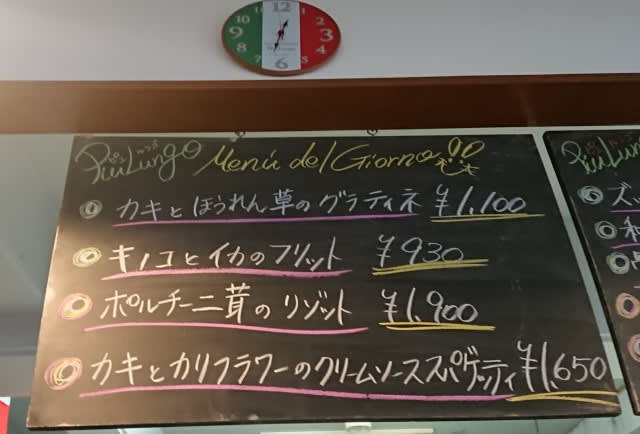 12
10
2
9
3
8
4
6
5
Più Lungo Menú del Giorno!!
カキとほうれん草のグラティネ ¥1,100
キノコとイカのフリット ¥930
ポルチーニ茸のリゾット ¥1,900
カキとカリフラワーのクリームソーススパゲッティ ¥1,650
Più Lu
ズ